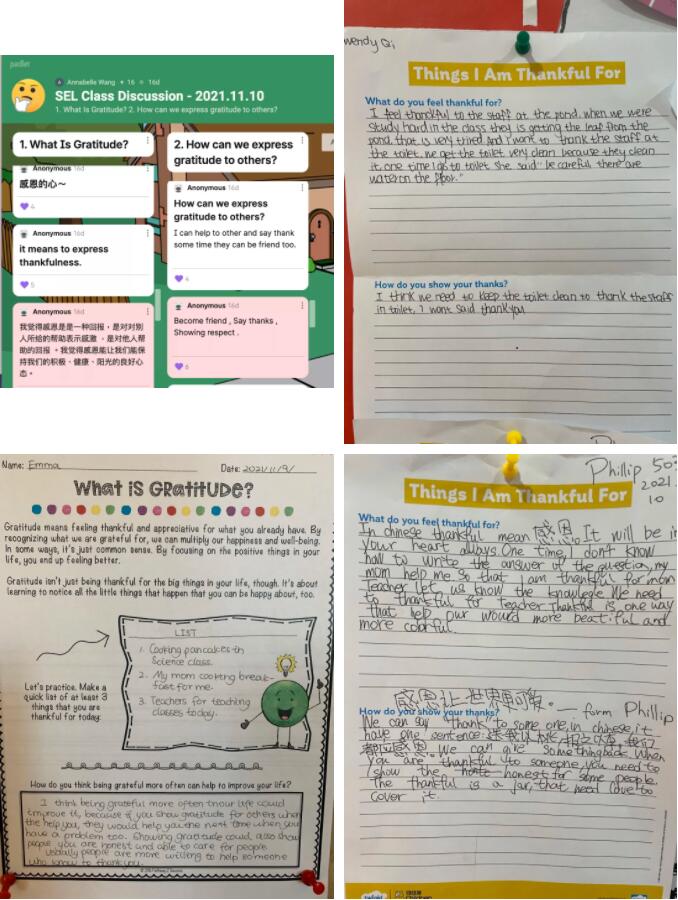 padlet
Annabelle Wang + 16 16d
SEL Class Discussion - 2021.11.10
1. What Is Gratitude? 2. How can we express gratitude to others?
1. What Is Gratitude?
Anonymous 16d
感恩的心～
4
Anonymous 16d
it means to express
thankfulness.
5
Anonymous 16d
我觉得感恩是是一种回报，是对对别
人所给的帮助表示感激，是对他人帮
助的回报。我觉得感恩能让我们能保
持我们的积极、健康、阳光的良好心
态。
2. How can we express
gratitude to others?
Anonymous 16d
How can we express
gratitude to others?
I can help to other and say thank
some time they can be friend too.
4
Anonymous 16d
Become friend , Say thanks ,
Showing respect .
6
Wendy Qi
Things I Am Thankful For
What do you feel thankful for?
I feel thankful to the staff at the pond. when we were
study hard in the class they is getting the leaf from the
pond, that is very tried. And I want to thank the staff at
the toilet. we get the toilet very clean because they clean
it. one time I go to toilet she said "be careful there are
water on the floor."
How do you show your thanks?
I think we need to keep the toilet clean to thank the staff
in toilet. I want said thank you
Name: Emma Date: 2021/11/9/
What iS GRatiTUDE?
Gratitude means feeling thankful and appreciative for what you already have. By
recognizing what we are grateful for, we can multiply our happiness and well-being.
In some ways, it's just common sense. By focusing on the positive things in your
life, you end up feeling better.
Gratitude isn't just being thankful for the big things in your life, though. It's about
learning to notice all the little things that happen that you can be happy about, too.
LIST
1. Cooking pancakes in
Science class.
2. My mom cooking break-
fast for me.
3. Teachers for teaching
classes today.
Let's practice. Make a
quick list of at least 3
things that you are
thankful for today:
How do you think being grateful more often can help to improve your life?
I think being grateful more often in our life could
improve it, because if you show gratitude for others when
the help you, they would help you the next time when you
have a problem too. Showing gratitude could also show
people you are honest and able to care for people.
Usually people are more willing to help someone
who to thank you.
Phillip 503
2021.
10
Things I Am Thankful For
What do you feel thankful for?
In chinese thankful mean 感恩. It will be in
your heart always. One time, I don't know
how to write the answer of the question, my
mom help me. So that I am thankful for mom
Teacher let us know the knowlege. We need
to thankful for teacher. Thankful is one way
that help our would more beautiful and
more colorful.
感恩让世界更可爱。— form Phillip
How do you show your thanks?
We can say "thank" to some one, in chinese, it
have one sentence: 我们
都应感恩. We can give something back. When
you are thankful to someone, you need to
show the honest for some people.
The thankful is a jar, that need love to
cover it.
twinkl